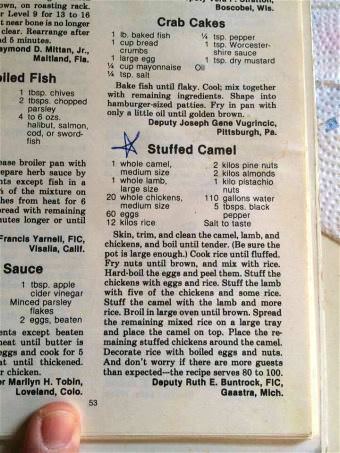 own, on roasting rack.
r Level 9 for 13 to 16
near bone is no longer
clear. Rearrange after
d 5 minutes.
aymond D. Mittan, Jr.,
Maitland, Fla.
iled Fish
1 tbsp. chives
2 tbsps. chopped
parsley
4 to 6 ozs.
halibut, salmon,
cod, or sword-
fish
ase broiler pan with
epare herb sauce by
nts except fish in a
½ of the mixture on
hes from heat for 6
read with remaining
nutes longer or until
Francis Yarnell, FIC,
Visalia, Calif.
Sauce
1 tbsp. apple
cider vinegar
Minced parsley
flakes
2 eggs, beaten
ents except beaten
heat until butter is
eggs and cook for 5
t until thickened.
r chicken.
r Marilyn H. Tobin,
Loveland, Colo.
Boscobel, Wis.
Crab Cakes
1 lb. baked fish
1 cup bread
crumbs
1 large egg
¼ cup mayonnaise
¼ tsp. salt
¼ tsp. pepper
1 tsp. Worcester-
shire sauce
1 tsp. dry mustard
Oil
Bake fish until flaky. Cool; mix together
with remaining ingredients. Shape into
hamburger-sized patties. Fry in pan with
only a little oil until golden brown.
Deputy Joseph Gene Vugrincic,
Pittsburg, Pa.
Stuffed Camel
1 whole camel,
medium size
1 whole lamb,
large size
20 whole chickens,
medium size
60 eggs
12 kilos rice
2 kilos pine nuts
2 kilos almonds
1 kilo pistachio
nuts
110 gallons water
5 tbsps. black
pepper
Salt to taste
Skin, trim, and clean the camel, lamb, and
chickens, and boil until tender. (Be sure the
pot is large enough.) Cook rice until fluffed.
Fry nuts until brown, and mix with rice.
Hard-boil the eggs and peel them. Stuff the
chickens with eggs and rice. Stuff the lamb
with five of the chickens and some rice.
Stuff the camel with the lamb and more
rice. Broil in large oven until brown. Spread
the remaining mixed rice on a large tray
and place the camel on top. Place the re-
maining stuffed chickens around the camel.
Decorate rice with boiled eggs and nuts.
And don't worry if there are more guests
than expected—the recipe serves 80 to 100.
Deputy Ruth E. Buntrock, FIC,
Gaastra, Mich.
53